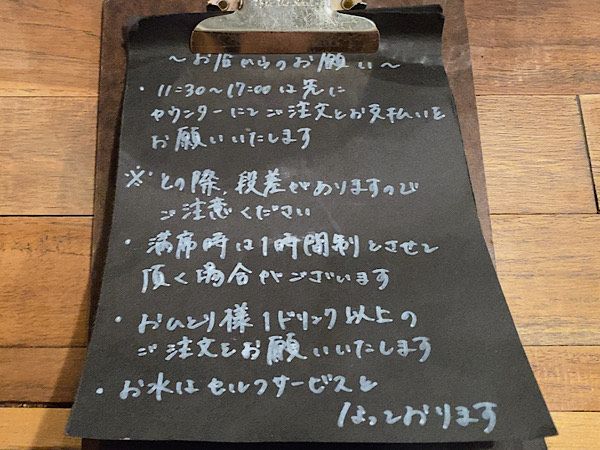 ～お店からのお願い～
・11:30～17:00は先に
カウンターにてご注文とお支払いを
お願いいたします
※その際、段差がありますので
ご注意ください
・満席時は1時間制とさせて
頂く場合がございます
・おひとり様1ドリンク以上の
ご注文をお願いいたします
・お水はセルフサービスと
なっております